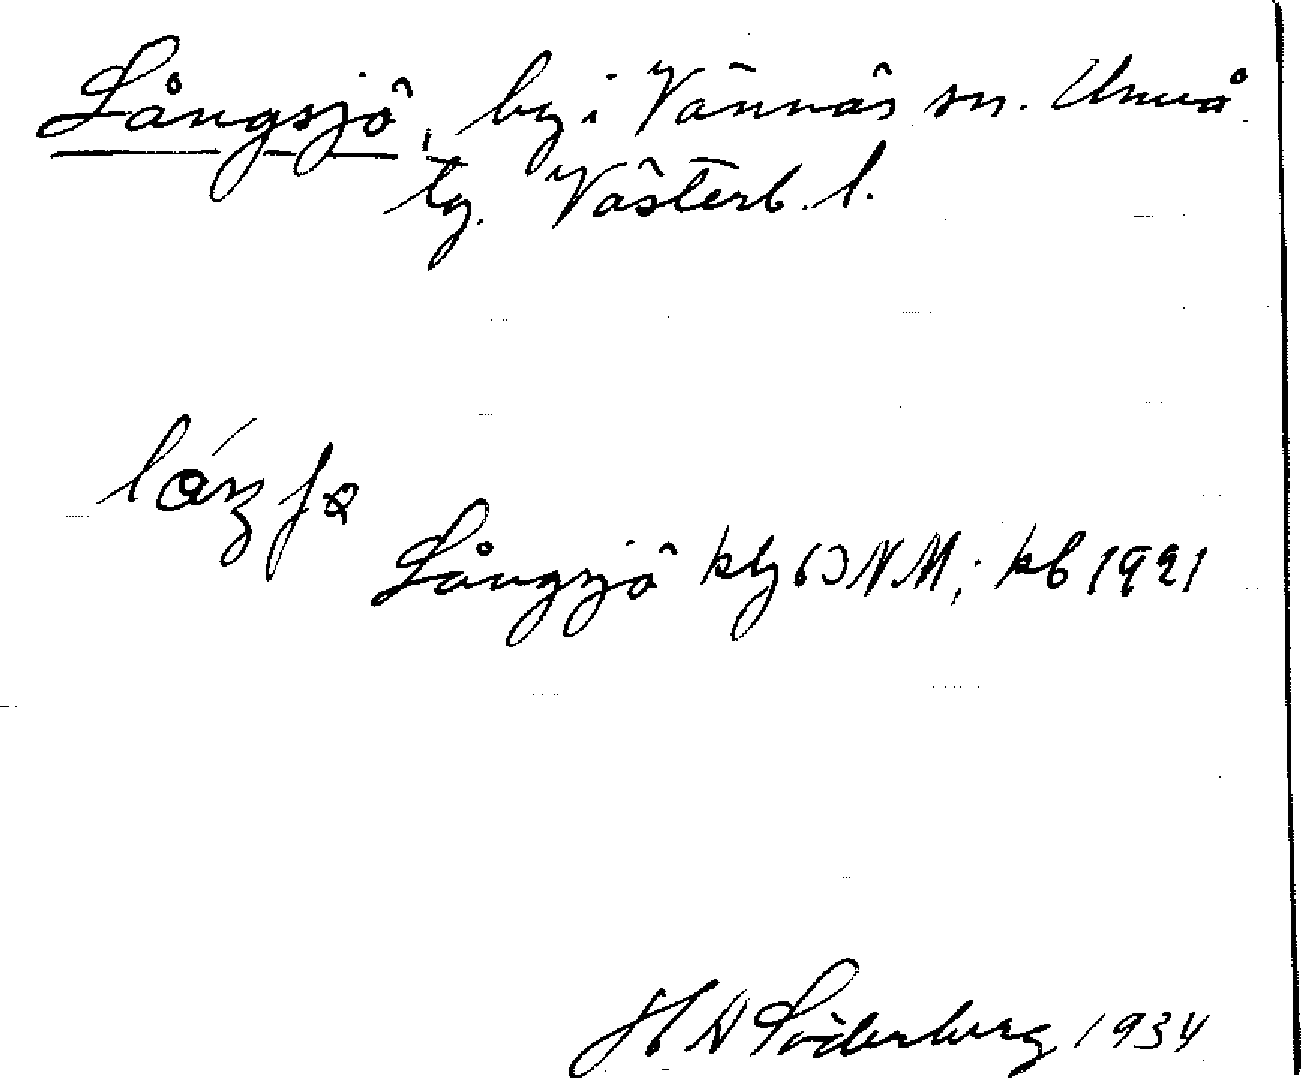 Långsjö, by i Vännäs sn. Umeå
tg. Västerb. l.
Långsjö kb 1921
H A Söderberg 1934